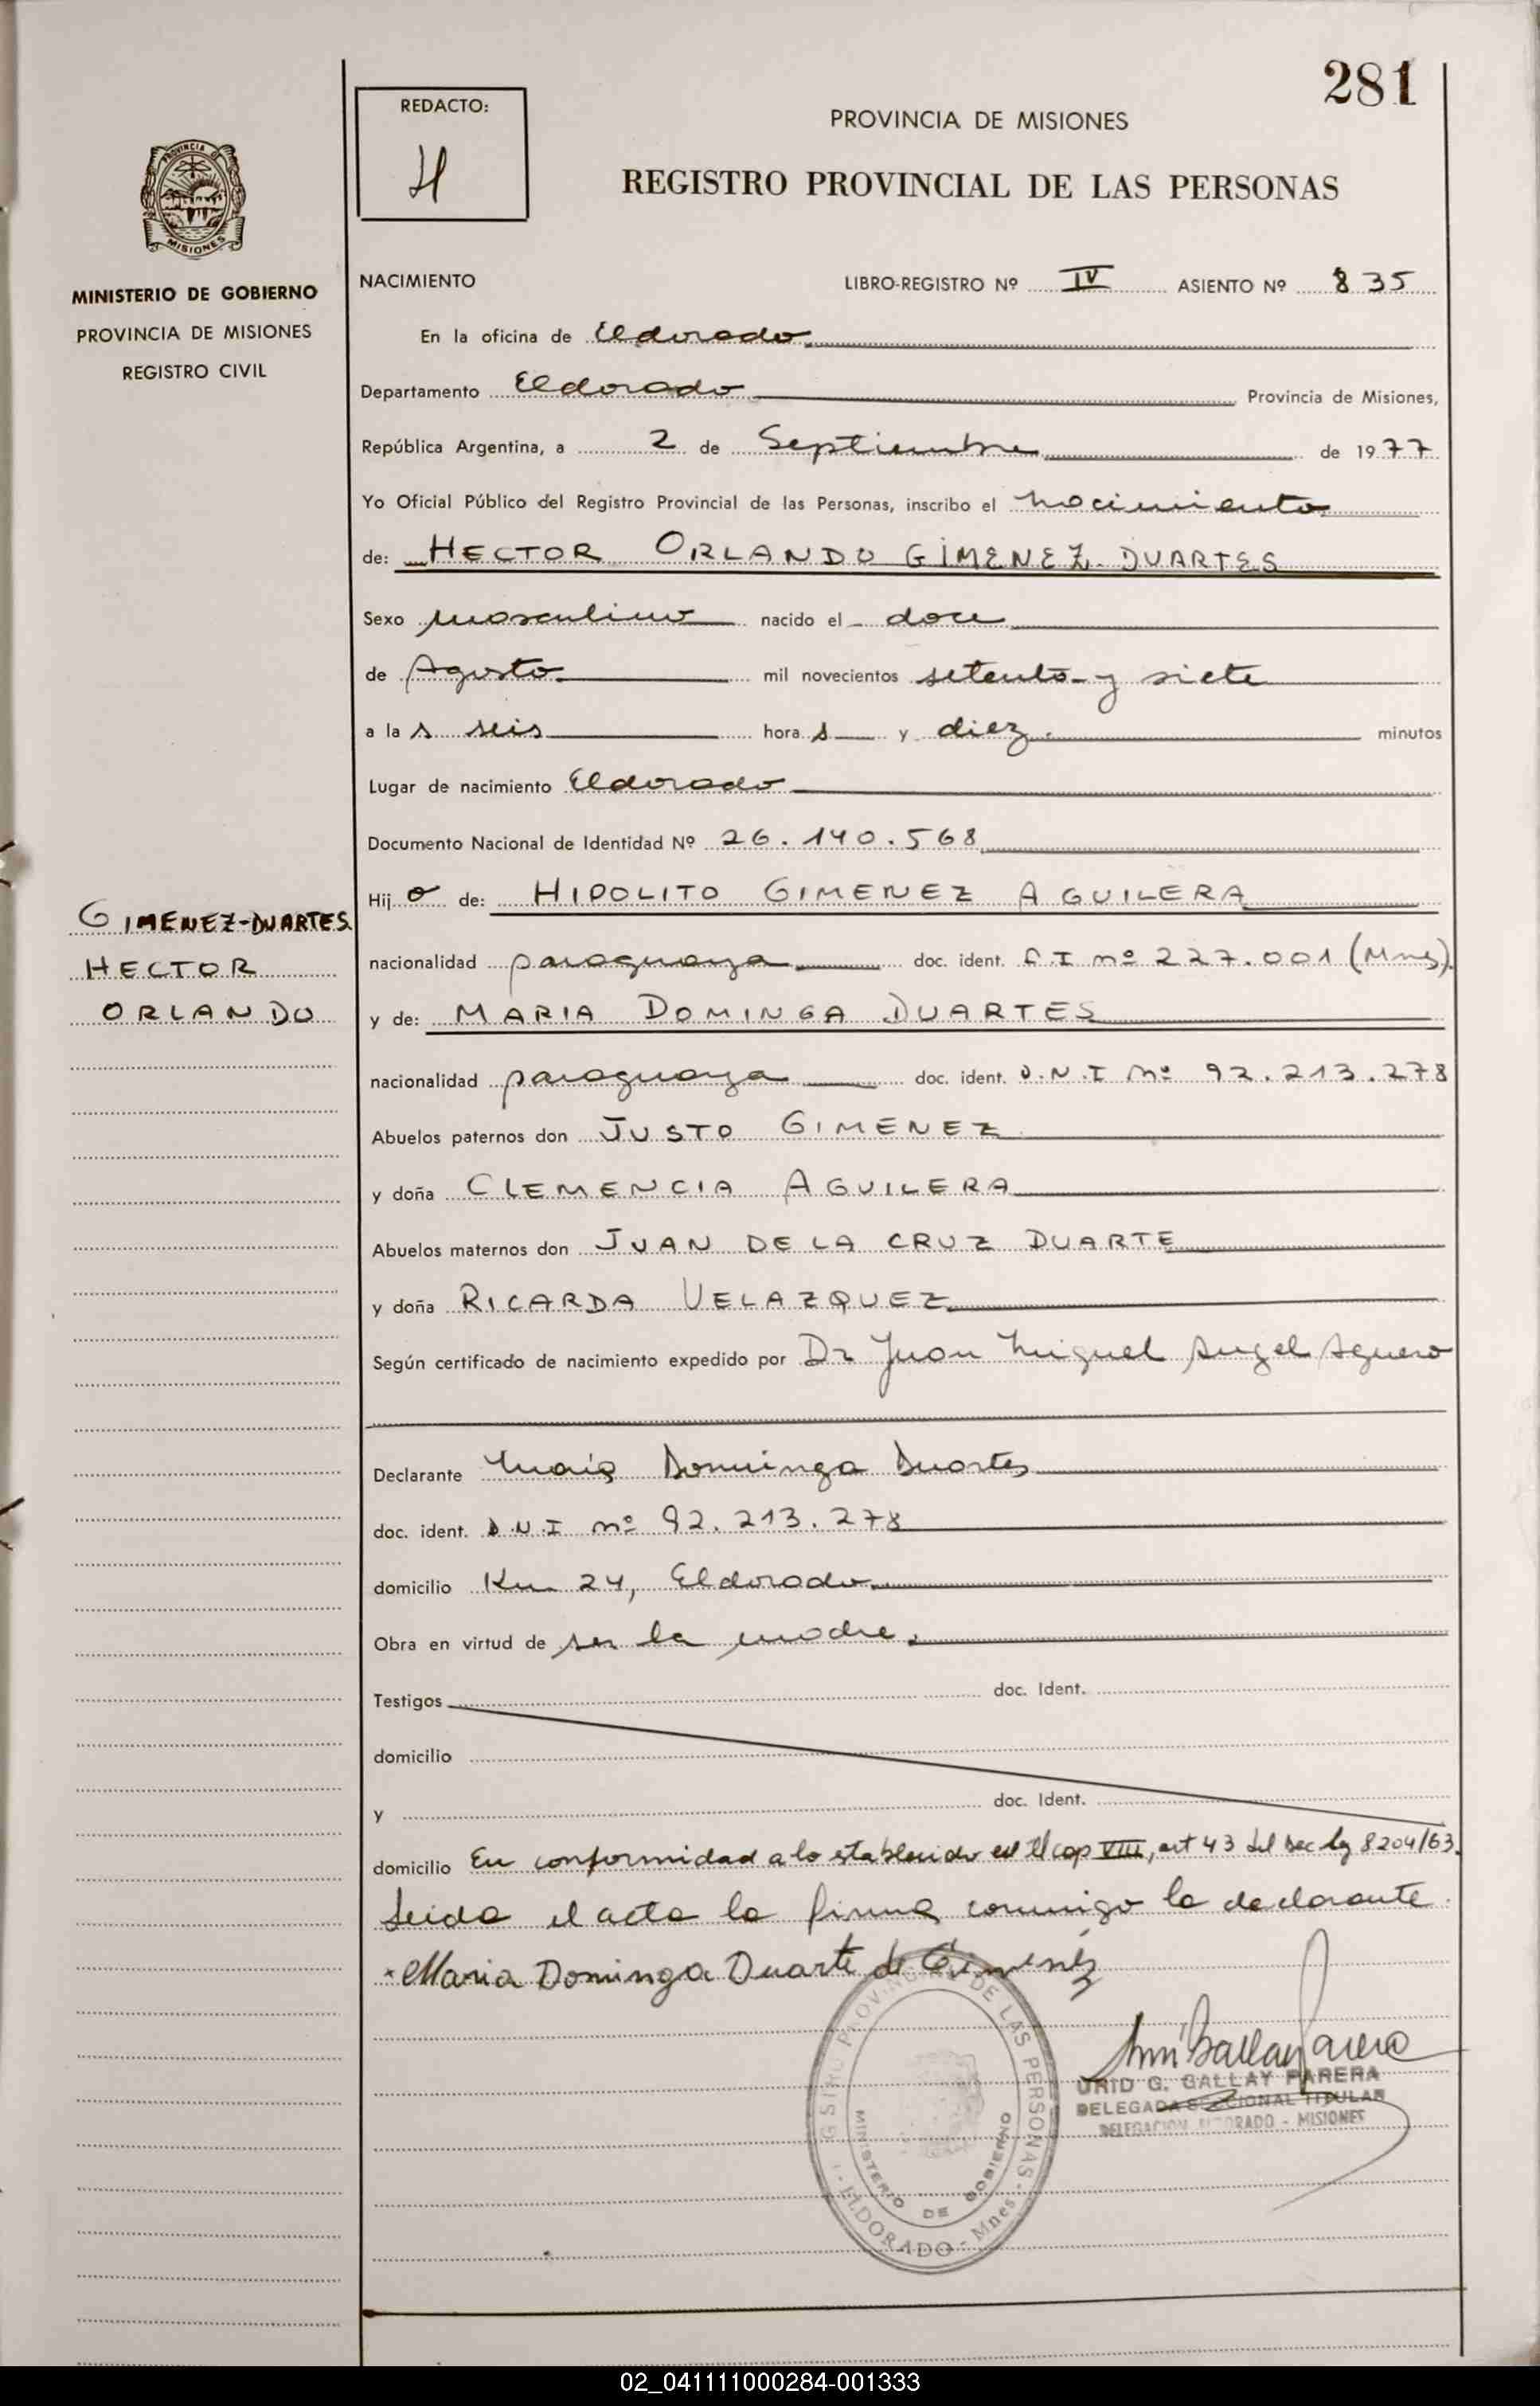 281
REDACTO:
H
PROVINCIA DE MISIONES
REGISTRO PROVINCIAL DE LAS PERSONAS
PROVINCIA
MISIONES
MINISTERIO DE GOBIERNO
PROVINCIA DE MISIONES
REGISTRO CIVIL
NACIMIENTO LIBRO-REGISTRO Nº IV ASIENTO Nº 835
En la oficina de Eldorado
Departamento Eldorado Provincia de Misiones,
República Argentina, a 2 de Septiembre de 1977
Yo Oficial Público del Registro Provincial de las Personas, inscribo el nacimiento
de: HECTOR ORLANDO GIMENEZ DUARTES
Sexo masculino nacido el doce
de Agosto mil novecientos setenta y siete
a las seis horas y diez minutos
Lugar de nacimiento Eldorado
Documento Nacional de Identidad Nº 26.140.568
Hijo de: HIPOLITO GIMENEZ AGUILERA
GIMENEZ-DUARTES
HECTOR
ORLANDO
nacionalidad paraguaya doc. ident. C.I nº 227.001 (Mnes).
y de: MARIA DOMINGA DUARTES
nacionalidad paraguaya doc. ident. D.N.I nº 92.213.278
Abuelos paternos don JUSTO GIMENEZ
y doña CLEMENCIA AGUILERA
Abuelos maternos don JUAN DE LA CRUZ DUARTE
y doña RICARDA VELAZQUEZ
Según certificado de nacimiento expedido por Dr Juan Miguel Angel Aguero
Declarante Maria Dominga Duartes
doc. ident. D.N.I nº 92.213.278
domicilio Km 24, Eldorado.
Obra en virtud de ser la madre.
Testigos doc. Ident.
domicilio
y doc. Ident.
domicilio En conformidad a lo establecido en el cap VIII, art 43 del Dec ley 8204/63.
Leida el acta la firma conmigo la declarante.
Maria Dominga Duarte de Gimenez
URID G. GALLAY PARERA
DELEGADA SECCIONAL TITULAR
DELEGACION ELDORADO - MISIONES
PROVINCIAL DE LAS PERSONAS
MINISTERIO DE GOBIERNO
ELDORADO - Mnes -
02_041111000284-001333